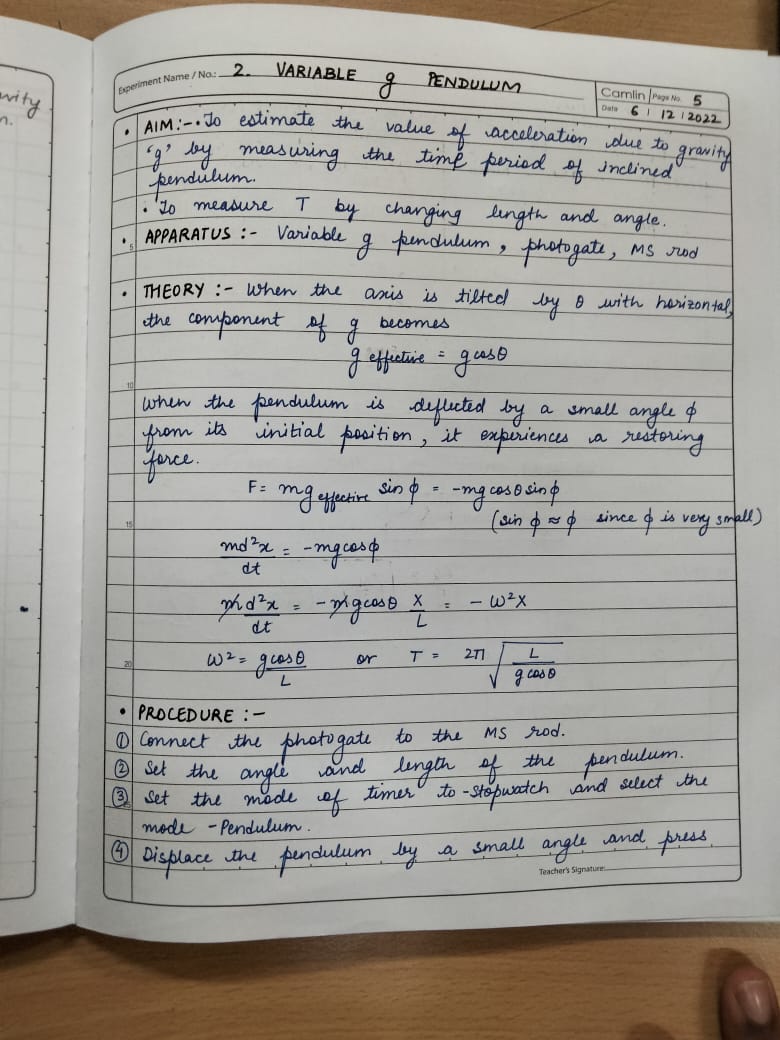 wity
n.
Experiment Name / No.: 2. VARIABLE g PENDULUM
Camlin Page No. 5
Date 6 / 12 / 2022
• AIM:- • To estimate the value of acceleration due to gravity
'g' by measuring the time period of inclined
pendulum.
• To measure T by changing length and angle.
• APPARATUS :- Variable g pendulum, photogate, MS rod
5
• THEORY :- When the axis is tilted by θ with horizontal,
the component of g becomes
g effective = g cosθ
10
When the pendulum is deflected by a small angle ϕ
from its initial position, it experiences a restoring
force.
F= mg effective sin ϕ = -mg cosθ sinϕ
(sin ϕ ≈ ϕ since ϕ is very small)
15
md²x/dt = -mgcosϕ
md²x/dt = -mgcosθ X/L = - ω²X
20
ω² = gcosθ/L or T = 2π √(L/g cosθ)
• PROCEDURE :-
① Connect the photogate to the MS rod.
② Set the angle and length of the pendulum.
③ Set the mode of timer to -Stopwatch and select the
mode -Pendulum.
④ Displace the pendulum by a small angle and press
Teacher's Signature: